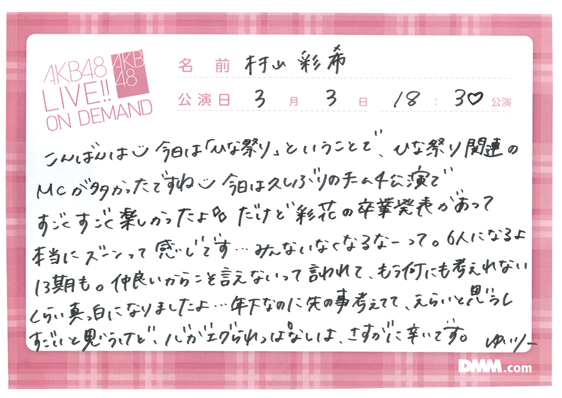 AKB48
LIVE!!
ON DEMAND
AKB
48
名 前 村山 彩希
公演日 3 月 3 日 18 : 30♡ 公演
こんばんは 今日は「ひな祭り」ということで、ひな祭り関連の
MCが多かったですね 今日は久しぶりのチーム4公演で
すごくすごく楽しかったよ だけど彩花の卒業発表があって
本当にズーンって感じです…みんないなくなるなーって。6人になるよ
13期も。仲良いからこそ言えないって言われて、もう何にも考えれない
くらい真っ白になりましたよ…年下なのに先の事考えてて、えらいと思うし
すごいと思うけど、心がエグられっぱなしは、さすがに辛いです。 ゆいりー
DMM.com